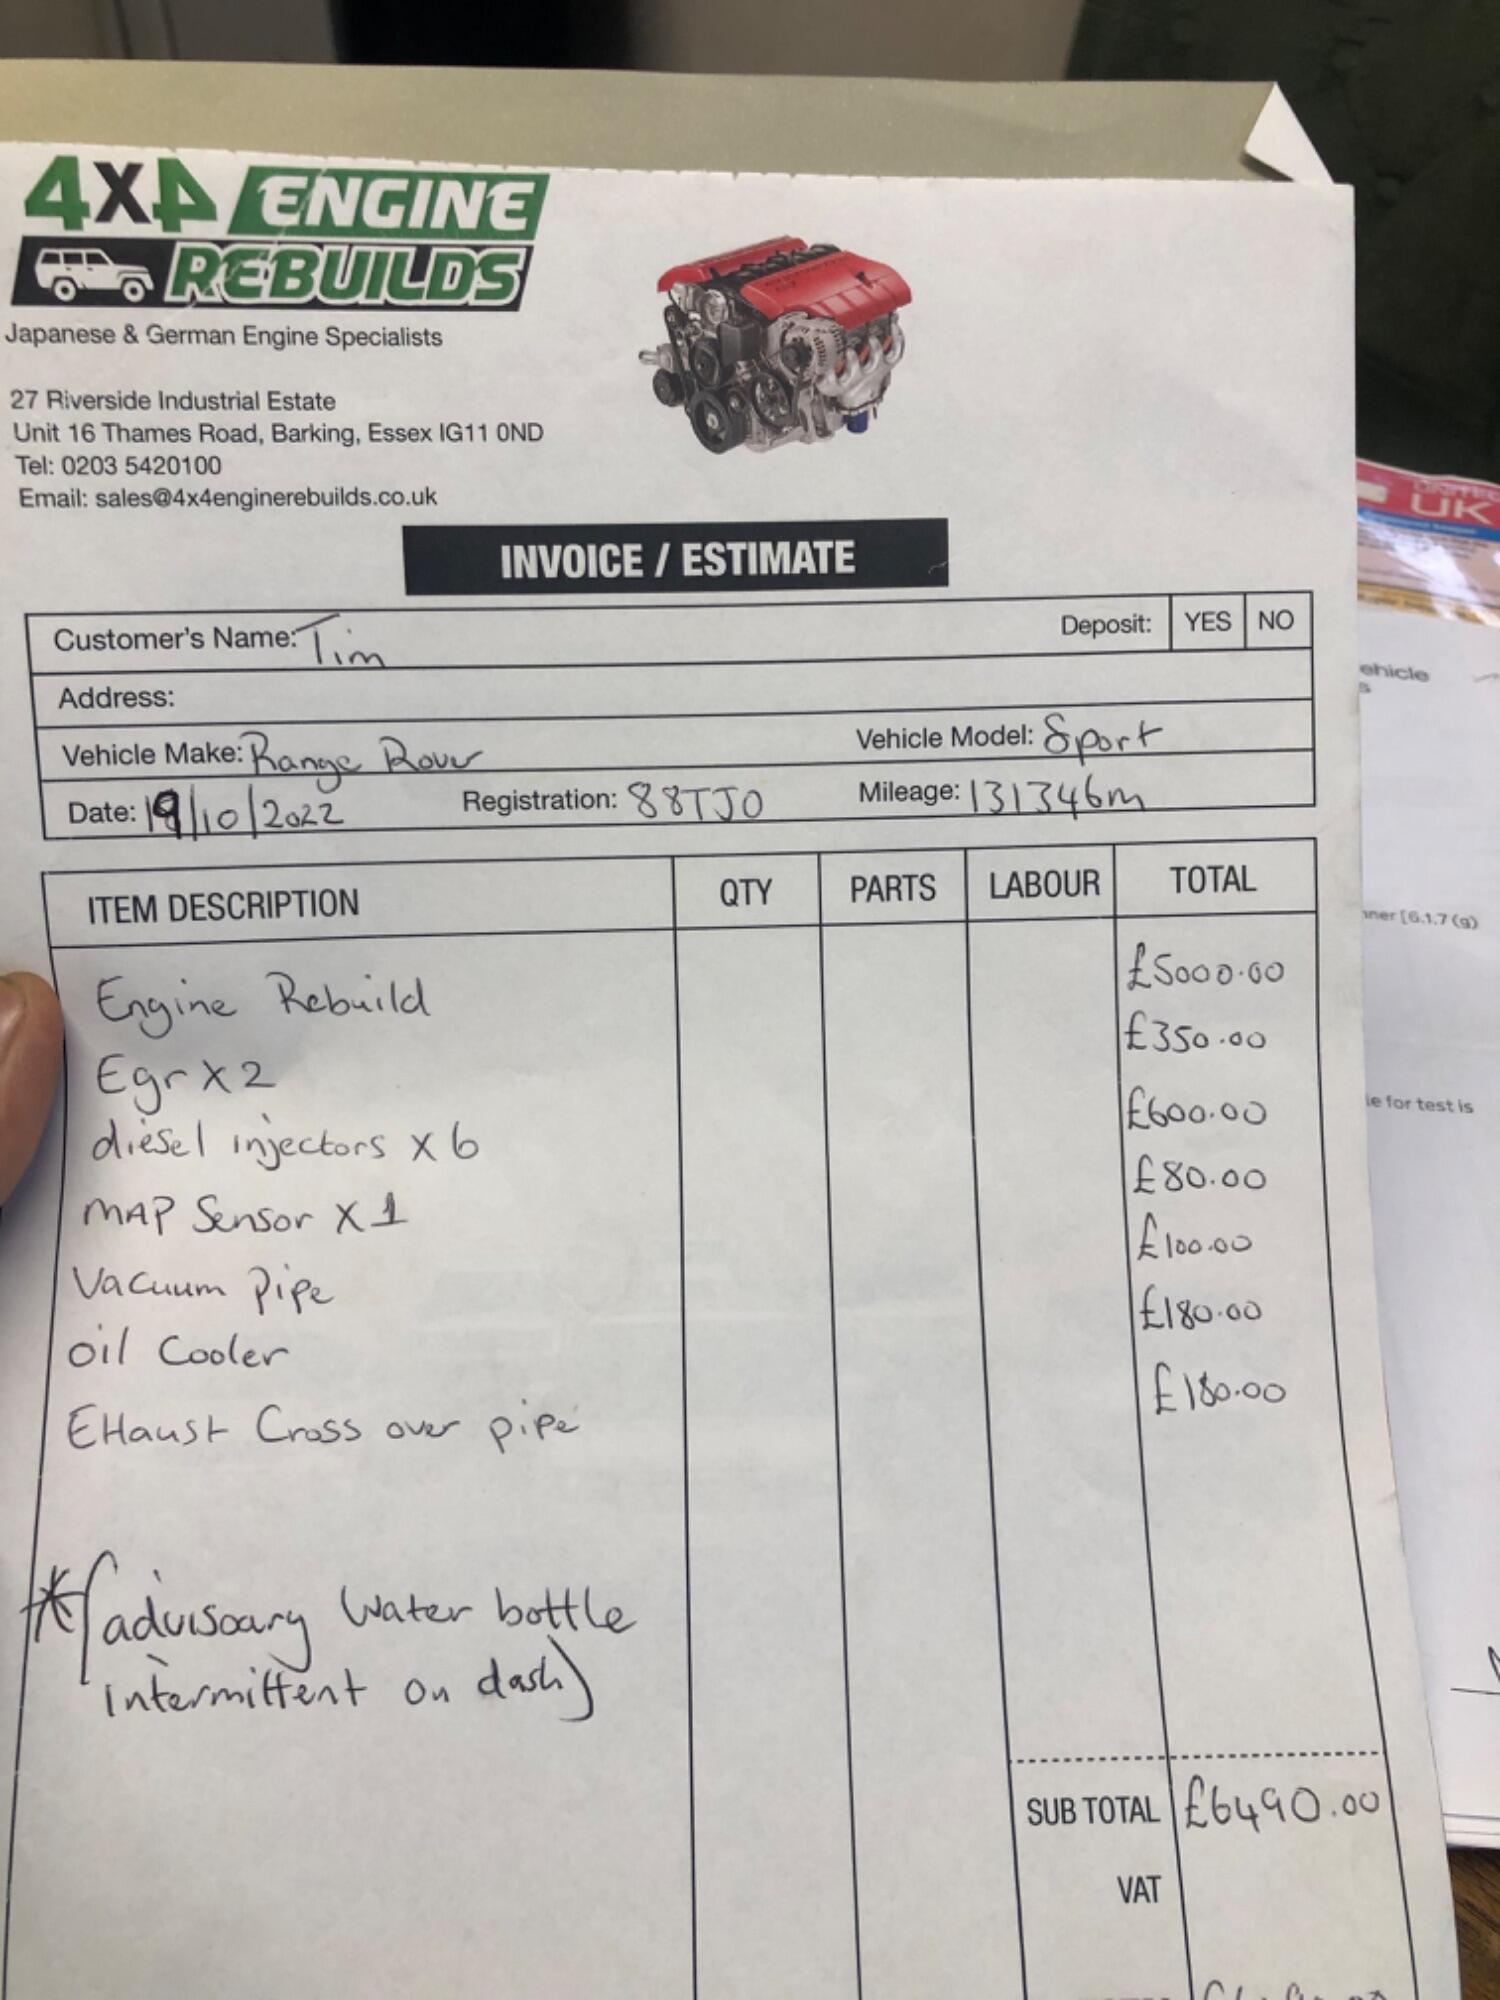 4X4 ENGINE
REBUILDS
Japanese & German Engine Specialists
27 Riverside Industrial Estate
Unit 16 Thames Road, Barking, Essex IG11 0ND
Tel: 0203 5420100
Email: sales@4x4enginerebuilds.co.uk
INVOICE / ESTIMATE
Customer's Name: Tim Deposit: YES NO
Address:
Vehicle Make: Range Rover Vehicle Model: Sport
Date: 19/10/2022 Registration: 88TJO Mileage: 131346m
ITEM DESCRIPTION QTY PARTS LABOUR TOTAL
Engine Rebuild £5000.00
Egr X 2 £350.00
diesel injectors X 6 £600.00
MAP Sensor X 1 £80.00
Vacuum Pipe £100.00
oil Cooler £180.00
EHaust Cross over pipe £180.00
*(advisoary Water bottle
intermittent on dash)
SUB TOTAL £6490.00
VAT
UK
ehicle
nner [6.1.7 (g)
le for test is